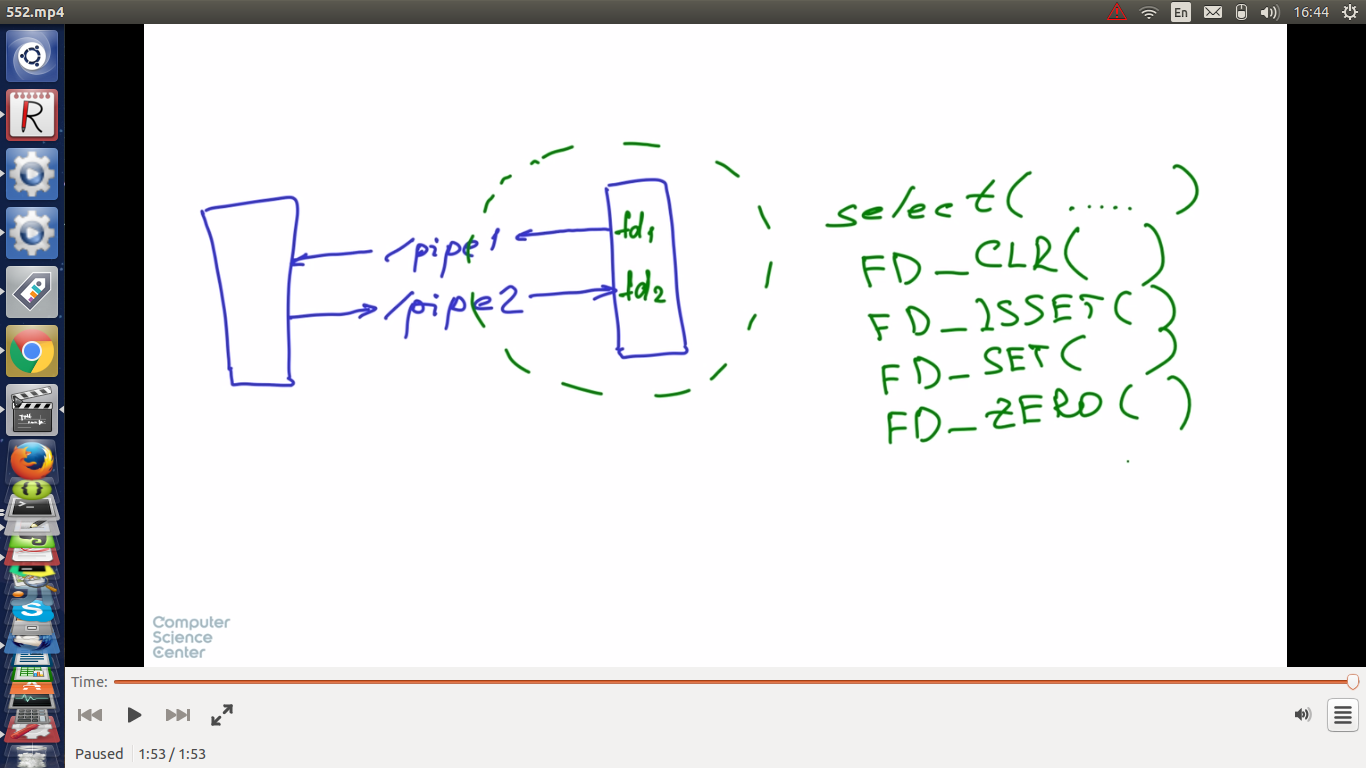 552.mp4
En
16:44
/pipe1
fd1
/pipe2
fd2
select( ..... )
FD_CLR( )
FD_ISSET( )
FD_SET( )
FD_ZERO( )
Computer
Science
Center
Time:
Paused
1:53 / 1:53